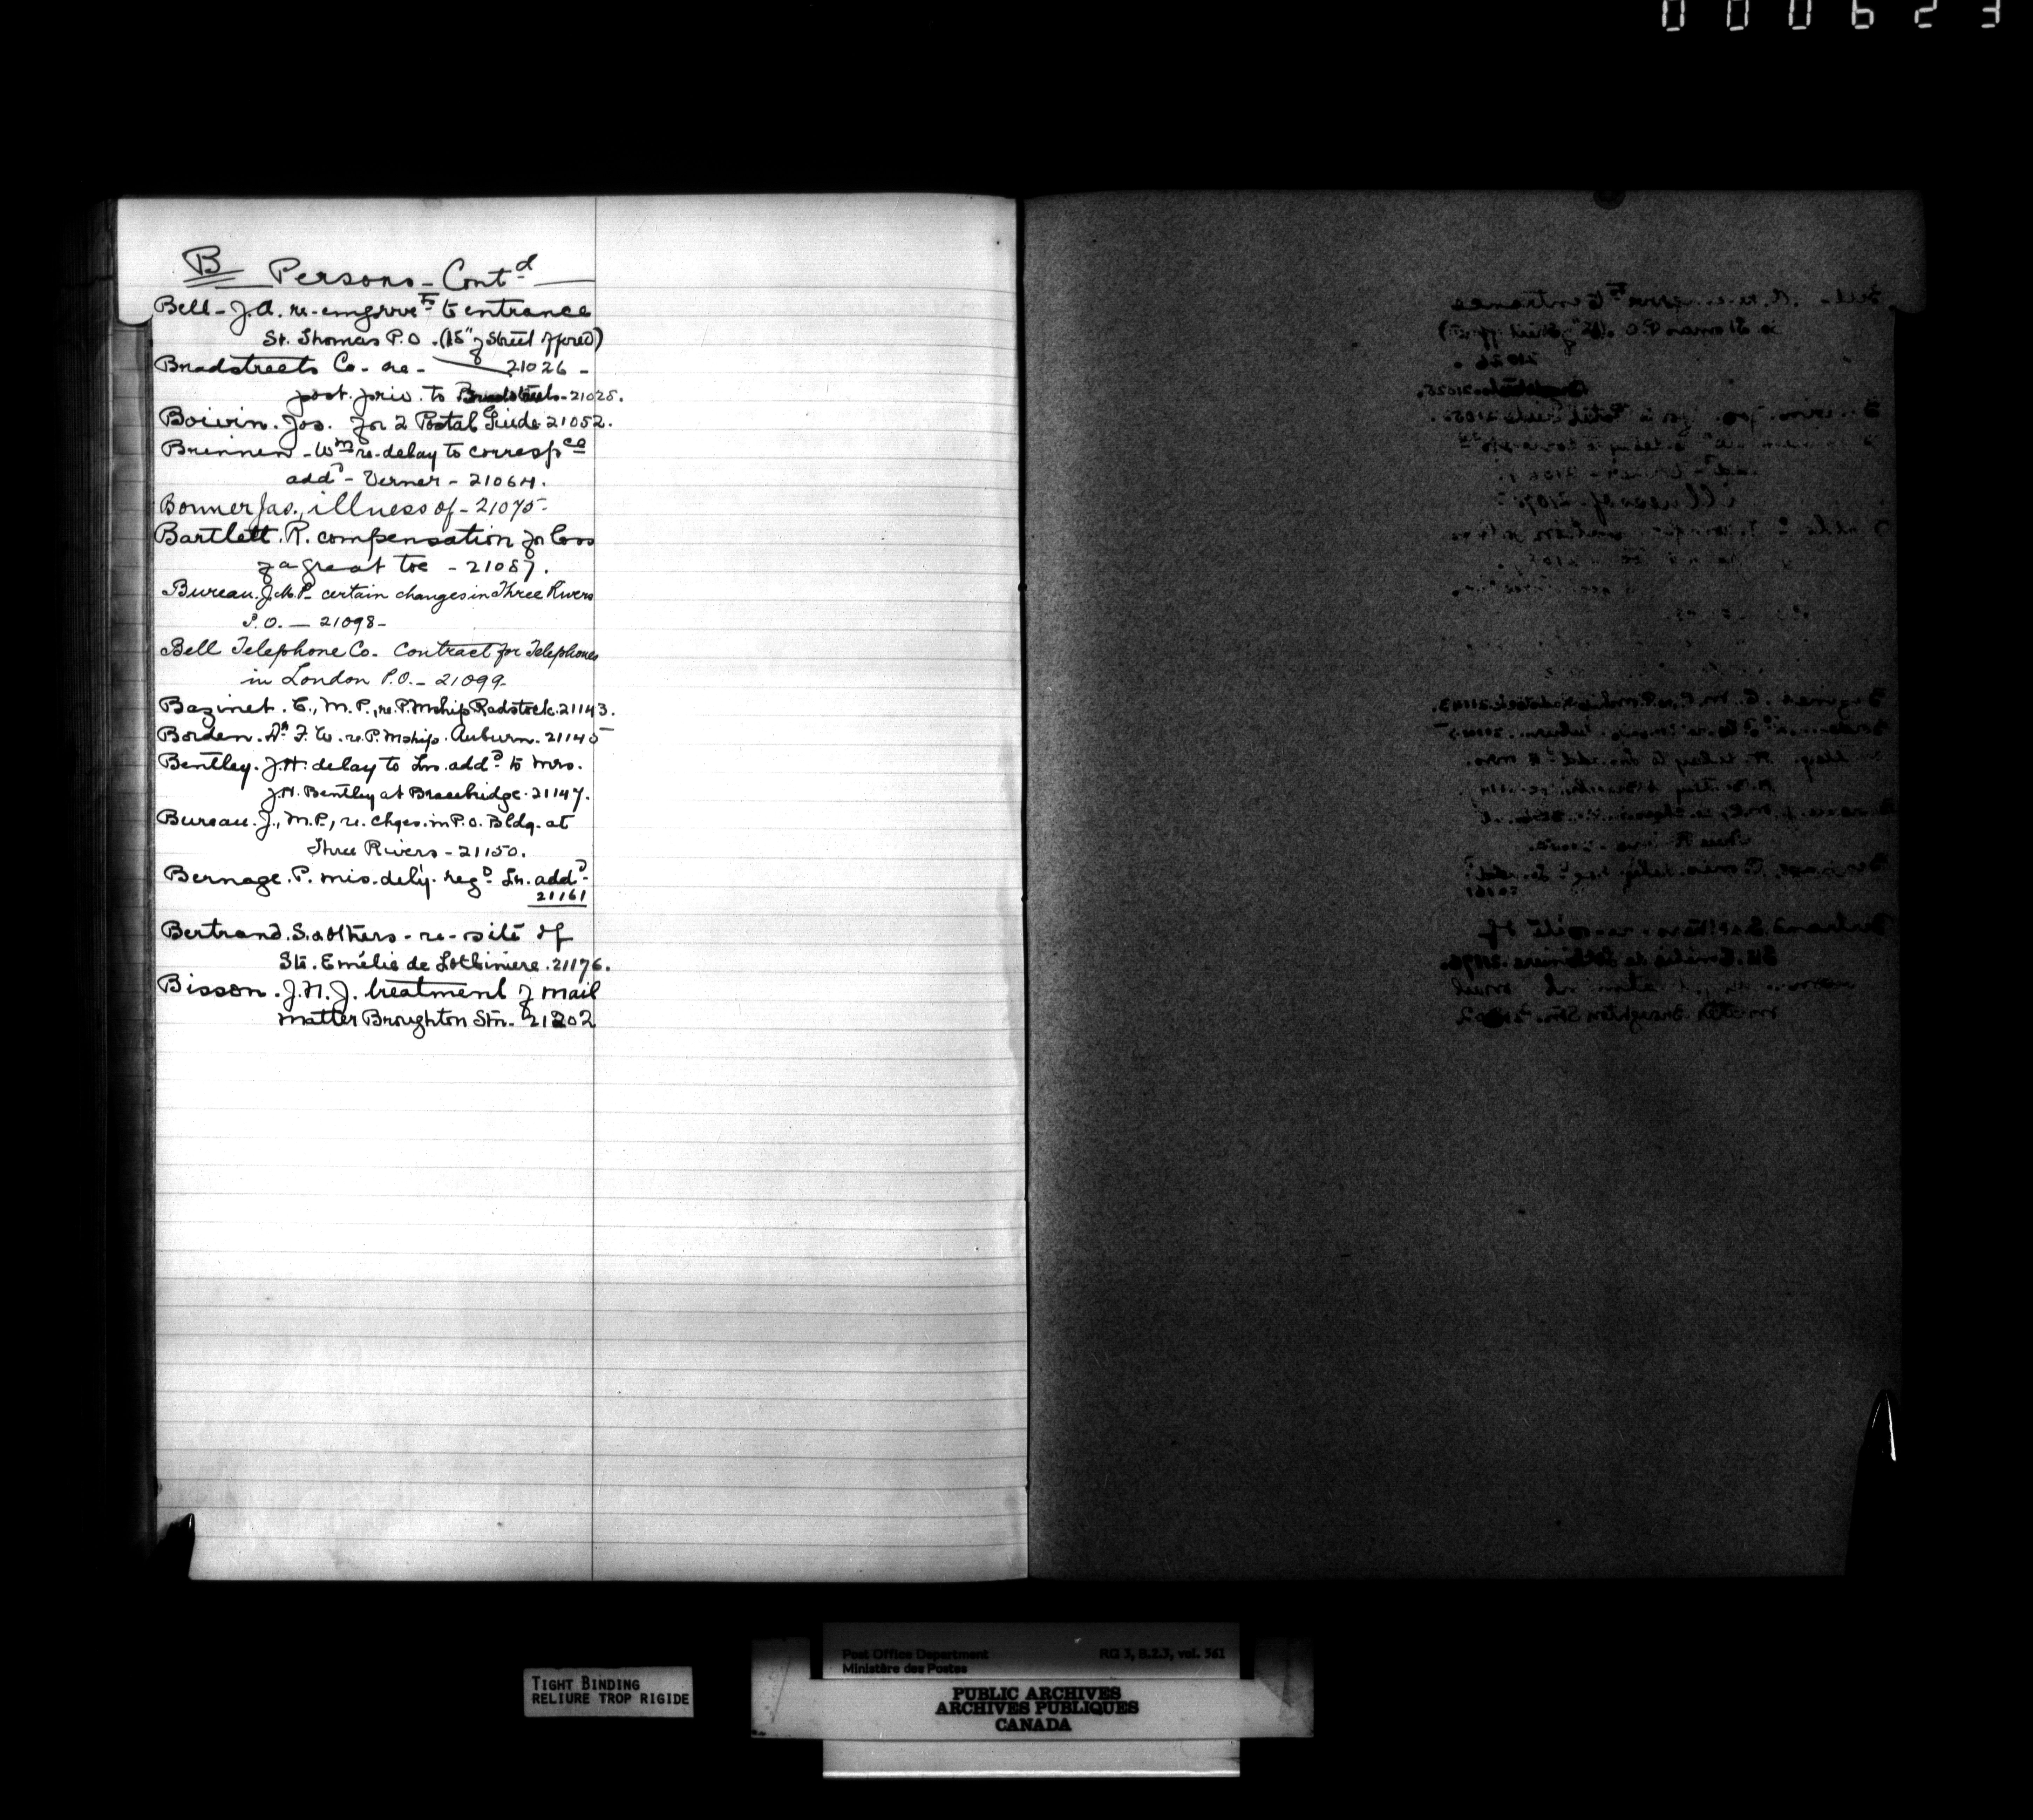 000623
B Persons - Cont^d
Bell - J.A. re-emgrove^t to entrance
St. Thomas P.O. (15" of Street offered)
Bradstreets Co. - re - 21026 -
post. priv. to Bradstreets - 21025.
Boivin. Jos. for 2 Postal Guide 21052.
Brennen - W^m re-delay to corresp^ce
add^d - Verner - 21064.
Bonner Jas., illness of - 21075 -
Bartlett. R. compensation for loss
of a great toe - 21087.
Bureau. J. M.P. certain changes in Three Rivers
P.O. — 21098 -
Bell Telephone Co. Contract for Telephones
in London P.O. - 21099 -
Bazinet. C., M.P., re. P.Mship Radstock. 21143.
Borden. Dr F. W. re. P.Mship. Auburn. 21145
Bentley. J.H. delay to Lrs. add^d to Mrs.
J.H. Bentley at Bracebridge. 21147.
Bureau. J., M.P., re. chges. in P.O. Bldg. at
Three Rivers - 21150.
Bernage. P. mis. dely. reg^d Lr. add^d -
21161
Bertrand. S. aothers - re - site of
Ste. Emélie de Lotbiniere. 21176.
Bisson. J.N.J. treatment of mail
matter Broughton Stn. 21202
Post Office Department RG 3, B.2.3, vol. 561
Ministère des Postes
TIGHT BINDING
RELIURE TROP RIGIDE
PUBLIC ARCHIVES
ARCHIVES PUBLIQUES
CANADA